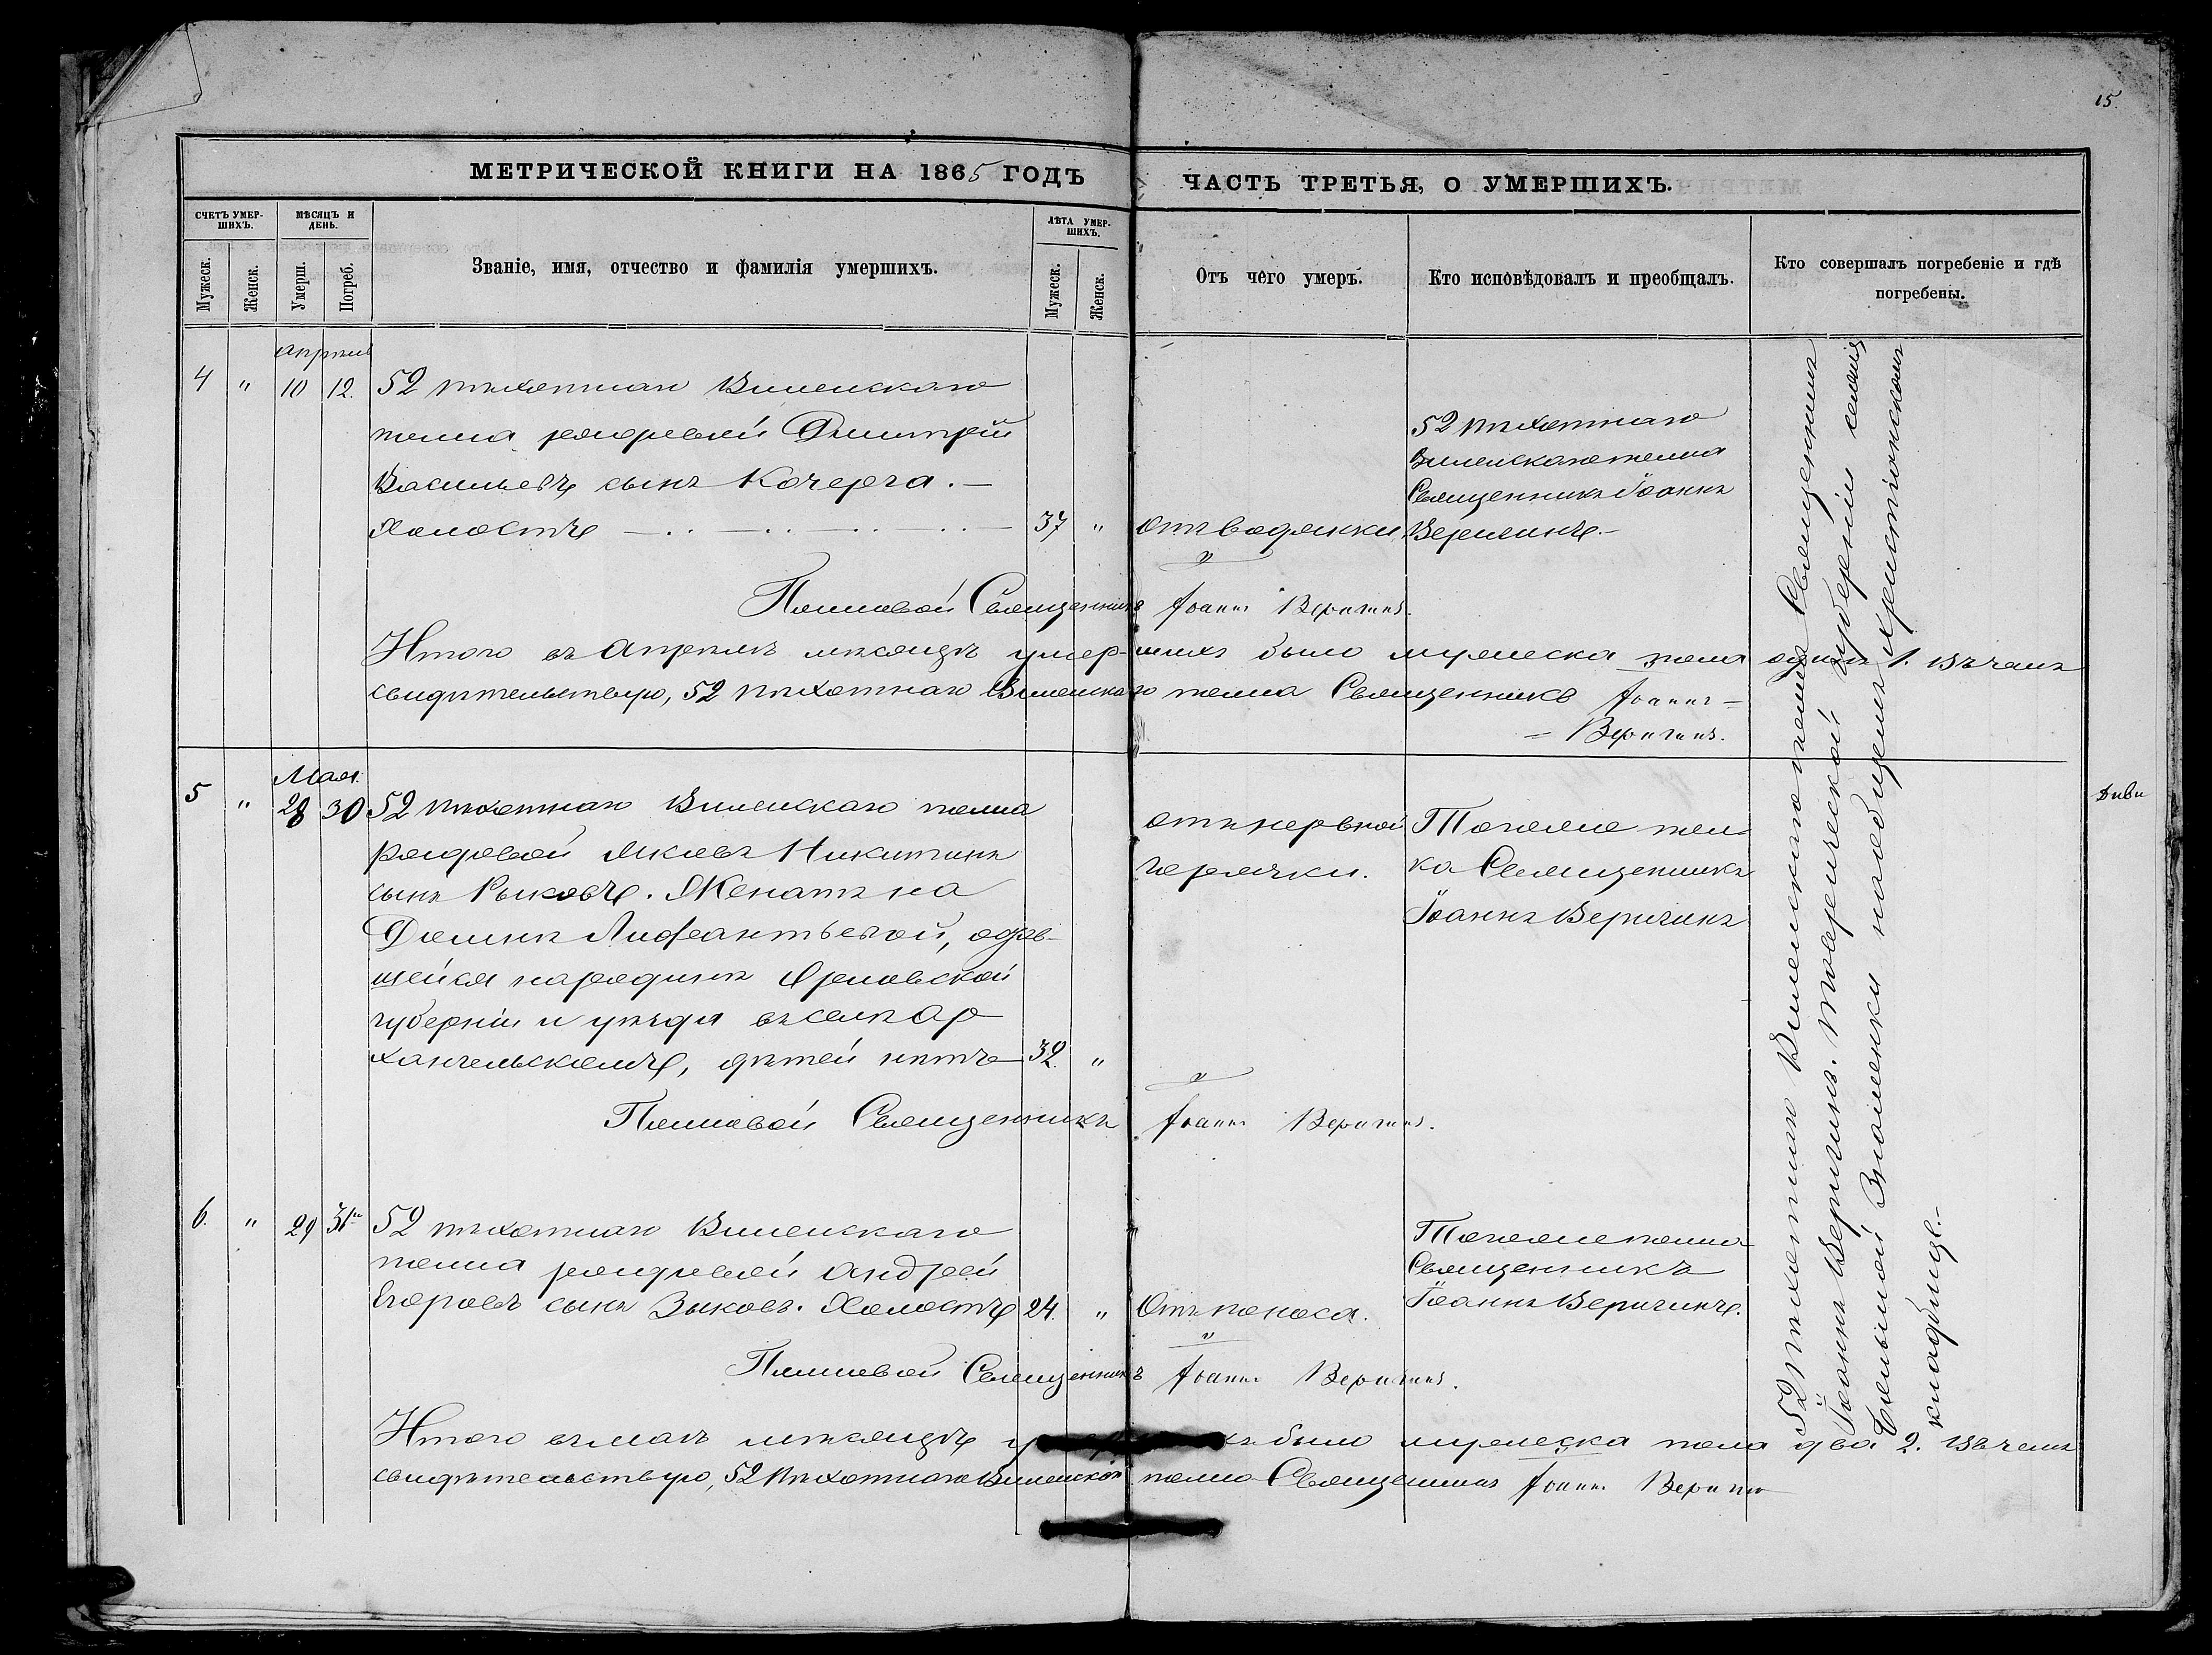 15.
МЕТРИЧЕСКОЙ КНИГИ НА 1865 ГОДЪ
ЧАСТЬ ТРЕТЬЯ, О УМЕРШИХЪ.
СЧЕТЪ УМЕР-
ШИХЪ.
МѢСЯЦЪ И
ДЕНЬ.
Званіе, имя, отчество и фамилія умершихъ.
ЛѢТА УМЕР-
ШИХЪ.
Мужеск.
Женск.
Умерш.
Погреб.
Мужеск.
Женск.
Отъ чего умеръ.
Кто исповѣдовалъ и преобщалъ.
Кто совершалъ погребеніе и гдѣ
погребены.
Апрѣль
4 " 10 12. 52 пѣхотнаго Виленскаго
полка рядовой Дмитрій
Васильевъ сынъ Кочерга. —
Холостъ 37 "
отъ водянки.
52 пѣхотнаго
Виленскаго полка
Священникъ Іоаннъ
Веригинъ. —
Полковой Священникъ Іоаннъ Веригинъ.
Итого въ Апрѣлѣ мѣсяцѣ умер-шихъ было мужеска пола одинъ 1. Въ чемъ
свидѣтельствую, 52 пѣхотнаго Виленскаго полка Священникъ Іоаннъ =
= Веригинъ.
Мая.
5 " 28 30 52 пѣхотнаго Виленскаго полка
рядовой Яковъ Никитинъ
сынъ Рыковъ. Женатъ на
Домнѣ
щейся на родинѣ Орловской
губерніи и уѣзда въ селѣ Ар
хангельскомъ, дѣтей нѣтъ 32. "
отъ нервной
горячки.
Тогоже пол-
ка Священникъ
Іоаннъ Веригинъ
Полковой Священникъ Іоаннъ Веригинъ.
6. " 29 31 52 пѣхотнаго Виленскаго
полка рядовой Андрей
Егоровъ сынъ Зыковъ. Холостъ 24. "
Отъ поноса.
Тогоже полка
Священникъ
Іоаннъ Веригинъ.
Полковой Священникъ Іоаннъ Веригинъ.
Итого въ маѣ мѣсяцѣ было мужеска пола два 2. Въ чемъ
свидѣтельствую, 52 Пѣхотнаго Виленскаго полка Священникъ Іоаннъ Веригинъ
52 пѣхотнаго Виленскаго полка Священникъ
Іоаннъ Веригинъ. Таврической губерніи селенія
Большой Знаменки на общемъ христіанскомъ
кладбище. —